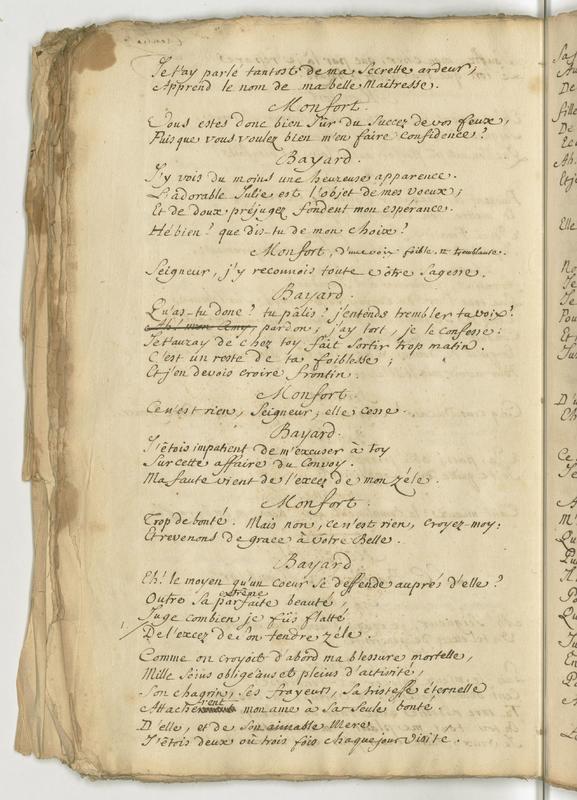 Je t'ay parlé tantost de ma secrette ardeur,
Apprend le nom de ma belle Maitresse.
Monfort.
Vous estes donc bien sûr du succez de vos feux,
Puisque vous voulez bien m'en faire confidence?
Bayard.
J'y vois du moins une heureuse apparence.
L'adorable Julie est l'objet de mes voeux;
Et de doux préjugez fondent mon espérance.
Hé bien? que dis-tu de mon choix?
Monfort, d'une voix foible et tremblante.
Seigneur, j'y reconnois toute vôtre sagesse.
Bayard.
Qu'as-tu donc? tu pâlis? j'entends trembler ta voix?
Ah! mon Amy, pardon, j'ay tort, je le confesse:
Je t'auray de chez toy fait sortir trop matin.
C'est un reste de ta foiblesse;
Et j'en devois croire frontin.
Monfort.
Ce n'est rien, Seigneur; elle cesse.
Bayard.
J'étois impatient de m'excuser à toy
Sur cette affaire du Convoy.
Ma faute vient de l'excez de mon zéle.
Monfort.
Trop de bonté. Mais non, ce n'est rien, croyez-moy:
Et revenons de grace à votre Belle.
Bayard.
Eh! le moyen qu'un coeur se deffende auprés d'elle?
extrême
Outre sa parfaite beauté,
Juge combien je fus flatté
De l'excez de son tendre zéle.
Comme on croyoit d'abord ma blessure mortelle,
Mille soins obligeans et pleins d'activité,
Son chagrin, ses frayeurs, sa tristesse éternelle
Attacherent mon ame à sa seule bonté.
D'elle, et de son aimable Mere
J'étois deux où trois fois chaque jour visité.